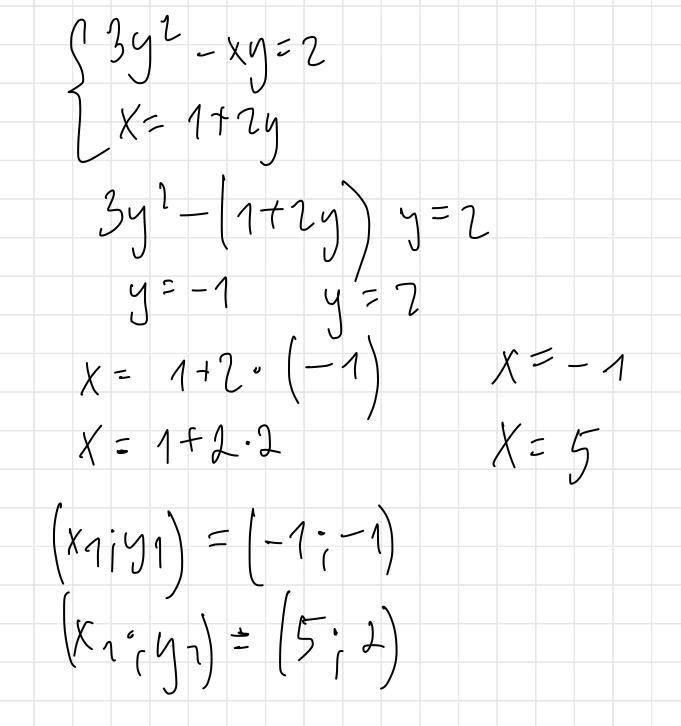 {3y² - xy = 2
x = 1+2y
3y² - (1+2y) y = 2
y = -1 y = 2
x = 1+2·(-1) x = -1
x = 1+2·2 x = 5
(x₁;y₁) = (-1;-1)
(x₂;y₂) = (5;2)